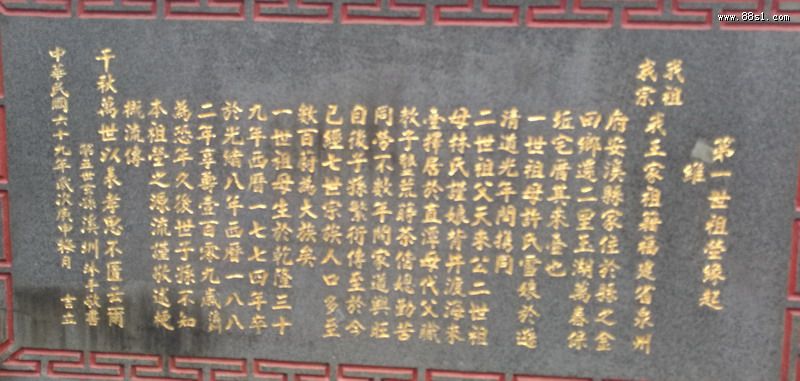 第一世祖塋緣起
維
我祖
我宗 我王家祖籍福建省泉州
府安溪縣家住於縣之金
田鄉還二里玉湖萬春保
坵宅厝其來臺也
一世祖母許氏雪緣於遜
清道光年間携同
二世祖父天來公二世祖
母林氏謹娘背井渡海來
臺擇居於直潭母代父職
教子墾荒時茶信媳勤苦
同勞不數年間家道興旺
自後子孫繁衍傳至於今
已經七世宗族人口多至
數百尌為大族矣
一世祖母生於乾隆三十
九年西曆一七七四年卒
於光緒八年西曆一八八
二年享壽壹百零九歲
為恐年久後世子孫不知
本祖塋之源流謹敬述梗
概流傳
千秋萬世以表孝思不匱云爾
第五世玄孫溪圳沐手敬書
中華民國六十九年歲次庚申梅月 吉立
www.88s1.com